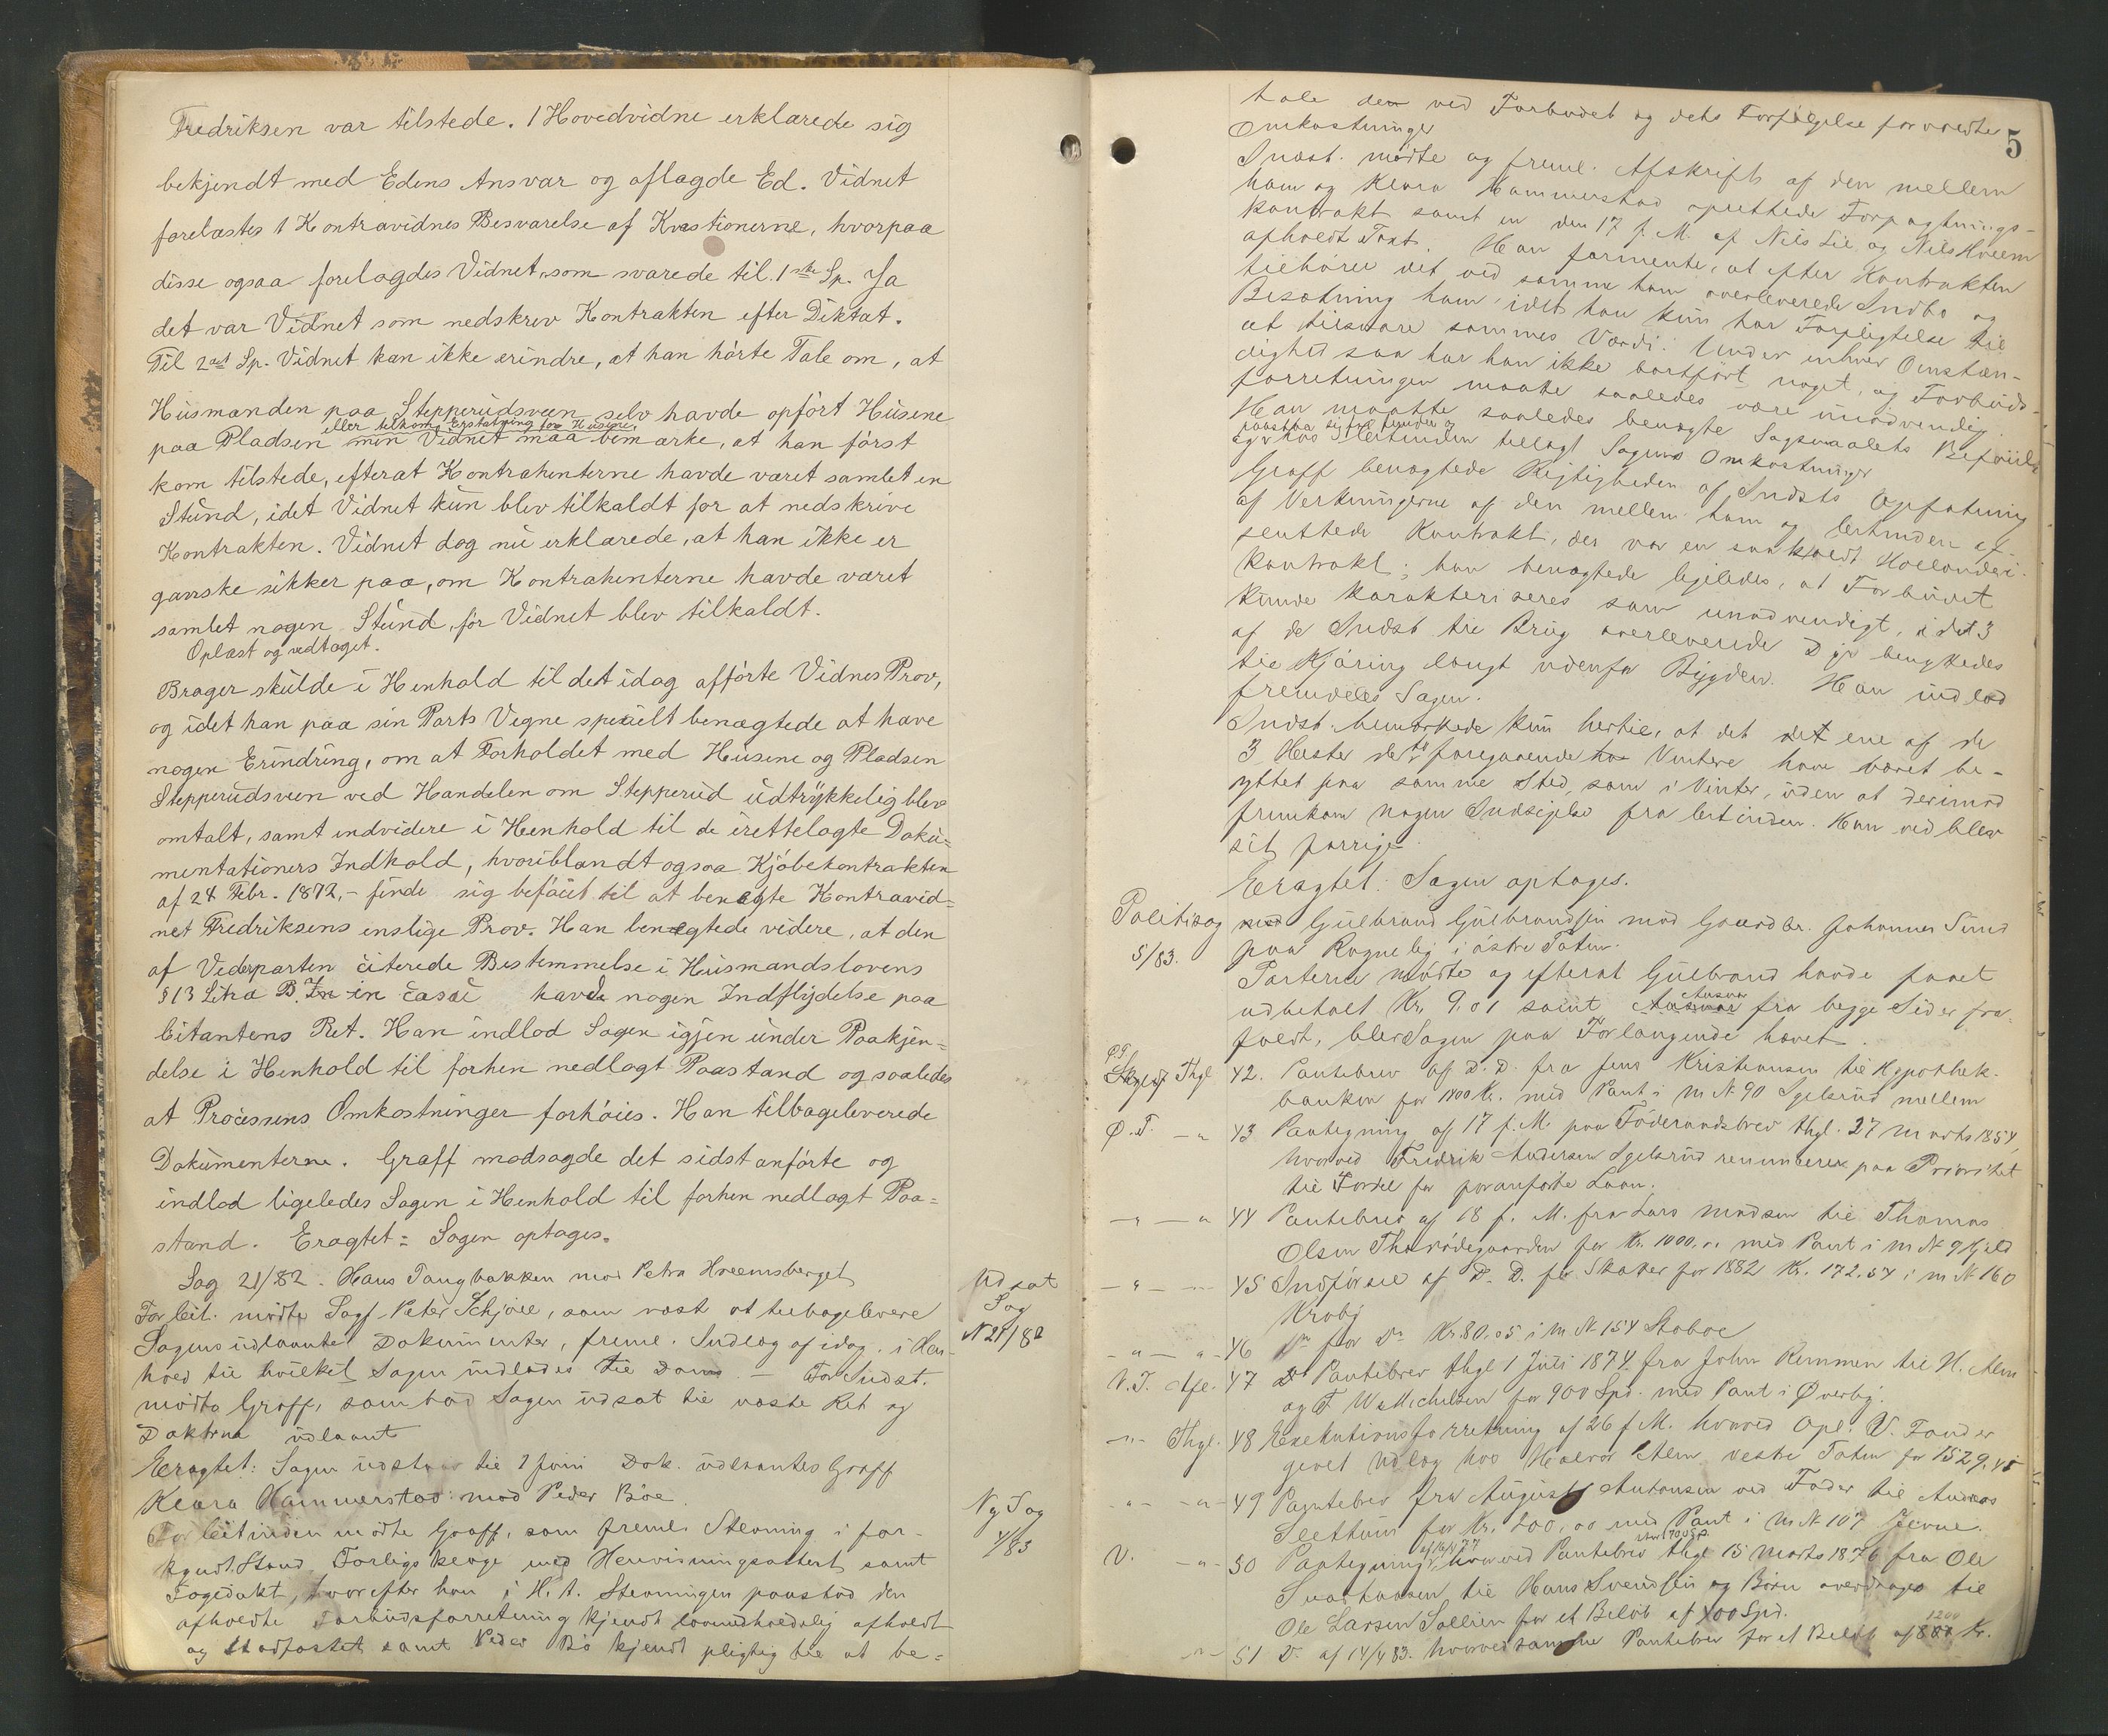 Fredriksen var tilstede. 1 Hovedvidne erklærede sig
bekjendt med Edens Ansvar og aflagde Ed. Vidnet
forelæstes 1 Kontravidnes Besvarelse af Kvæstionerne, hvorpaa
disse ogsaa forelagdes Vidnet, som svarede til 1ste Sp. Ja
det var Vidnet som nedskrev Kontrakten efter Diktat.
Til 2det Sp. Vidnet kan ikke erindre, at han hørte Tale om, at
Husmanden paa Stepperudsveen selv havde opført Husene
eller tilkom Erstatning for Husene,
paa Pladsen men Vidnet maa bemærke, at han først
kom tilstede, efterat Kontrahenterne havde været samlet en
Stund, idet Vidnet kun blev tilkaldt for at nedskrive
Kontrakten. Vidnet dog nu erklærede, at han ikke er
ganske sikker paa, om Kontrahenterne havde været
samlet nogen Stund, før Vidnet blev tilkaldt.
Oplæst og vedtaget.
Brager skulde i Henhold til det idag afførte Vidnes Prov,
og idet han paa sin Parts Vegne specielt benægtede at have
nogen Erindring, om at Forholdet med Husene og Pladsen
Stepperudsveen ved Handelen om Stepperud udtrykkelig blev
omtalt, samt endvidere i Henhold til de irettelagte Doku=
mentationers Indhold, hvoriblandt ogsaa Kjøbekontrakten
af 24 Febr. 1872,- finde sig beføiet til at benægte Kontravid=
net Fredriksens enslige Prov. Han benægtede videre, at den
af Vederparten citerede Bestemmelse i Husmandslovens
§13 Litra B. In in casu havde nogen Indflydelse paa
Citantens Ret. Han indlod Sagen igjen under Paakjen=
delse i Henhold til forhen nedlagt Paastand og saaledes
at Processens Omkostninger forhøies. Han tilbageleverede
Dokumenterne. Graff modsagde det sidst anførte og
indlod ligeledes Sagen i Henhold til forhen nedlagt Paa=
stand. Eragtet: Sagen optages.
Sag 21/82. Hans Taugbakken mod Petra Hveemsberget
Udsat
Sag
N 21/82
For Cit. mødte Sagf. Peter Schjøll, som næst at tilbagelevere
Sagens udlaante Dokumenter, freml. Indlæg af idag, i Hen-
hold til hvilket Sagen indlodes til Doms. - For Indst.
mødte Graff, som bad Sagen udsat til næste Ret og
Doktrne udlaant
Eragtet: Sagen udstaar til 1 Juni Dok. udlaantes Graff
Klara Hammerstad mod Peder Bøe
Ny Sag
4/83
For Citinden mødte Graff, som freml. Stevning i for-
kyndt Stand Forligsklage med Henvisningsattest samt
Fogedakt, hvorefter han i H. t. Stevningen paastod den
afholdte Forbudsforretning kjendt lovmedholdelig afholdt
og stadfæstet samt Peder Bø kjendt pligtig til at be=
5
tale den ved Forbudet og dets Forfølgelse forvoldte
Omkostninger
Indst. mødte og freml. Afskrift af den mellem
ham og Klara Hammerstad oprettede Forpagtnings-
kontrakt samt en den 17 f. M. af Nils Lie og Nils Hveem
afholdt Taxt. Han formente, at efter Kontrakten
tilhører det ved samme ham overleverede Indbo og
Besætning ham, idet han kun har Forpligtelse til
at tilsvare sammes Værdi. Under enhver Omstæn-
dighed saa har han ikke bortført noget, og Forbuds-
forretningen maatte saaledes være unødvendig.
Han maatte saaledes benægte Sagsmaalets Beføielse
paastaa sig frifunden og
og hos Citinden tillagt Sagens Omkostninger
Graff benægtede Rigtigheden af Indsts Opfatning
af Virkningerne af den mellem ham og Citinden op-
rettede Kontrakt, der var en saakaldt Hollænderi-
kontrakt; han benægtede ligeledes, at Forbudet
kunde karakteriseres som unødvendigt, idet 3
af de Indst til Brug overleverede Dyr benyttedes
til Kjøring langt udenfor Bygden. Han indlod
fremdeles Sagen.
Indst. bemærkede kun hertil, at det det ene af de
3 Heste de foregaaende Vintere have været be-
nyttet paa samme Sted, som i Vinter, uden at derimod
fremkom nogen Indsigelse fra Citinden. Han vedblev
sit forrige.
Eragtet: Sagen optages.
Politisag
5/83.
Gulbrand Gulbrandsen mod Gaardbr. Johannes Sund
paa Rognelig i østre Toten.
Parterne mødte og efterat Gulbrand havde faaet
udbetalt Kr. 9.01 samt Ansvar fra begge Sider fra-
faldt, blev Sagen paa Forlangende hævet.
Thgl 42. Pantebrev af D. D. fra Jens Kristiansen til Hypothek-
banken for 1800 Kr. med Pant i M N 90 Sgelsrud mellem
Ø. T. - " 43 Paategning af 17 f. M. paa Føderaadsbrev thgl. 27 Marts 1854,
hvorved Fredrik Andersen Sgelsrud renuncerer paa Prioritet
til Fordel for foranførte Laan.
- " - " 44 Pantebrev af 18 f. M. fra Lars Madsen til Thomas
Olsen Tharødegaarden for Kr. 1000.00 med Pant i M N 9
- " - 45 Indførsel af D. D. for Skatter for 1882 Kr. 172.54 i M N 160
Kraby
- " - " - 46 Do for Do Kr. 80.05 i M N 154 Stabo
V. T. Afl. 47 Pantebrev thgl 1 Juli 1874 fra John Remmen til H. Alm
og F. W. Michelsen for 900 Spd. med Pant i Øverby.
- " - Thgl. 48 Executionsforretning af 26 f M. hvorved Opl. V. Fond er
givet Udlæg hos Halvor Alm vestre Toten for 1529.45
- " - - " - 49 Pantebrev fra August Antonsen ved Fader til Andreas
Sletthun for Kr. 200,00 med Pant i M N 107 Jevne.
V. - " - 50 Paategning hvorved Pantebrev thgl 15 Marts 1876 fra Ole
til Hans Svendsen og Børn overdrages til
Ole Larsen Sollien for et Beløb af 400 Spd.
1200
- " - 51 Do af 14/4 83. hvorved samme Pantebrev for et Beløb af 880 Kr.